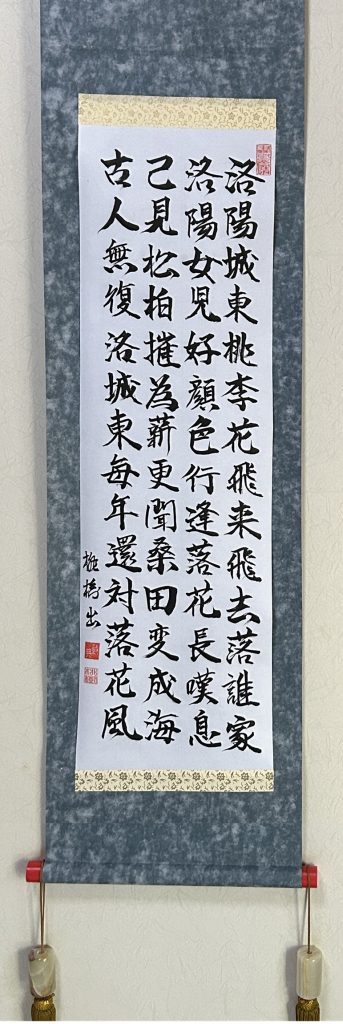 洛陽城東桃李花飛来飛去落誰家
洛陽女児好顔色行逢落花長嘆息
己見松柏摧為薪更聞桑田変成海
古人無復洛城東毎年還対落花風